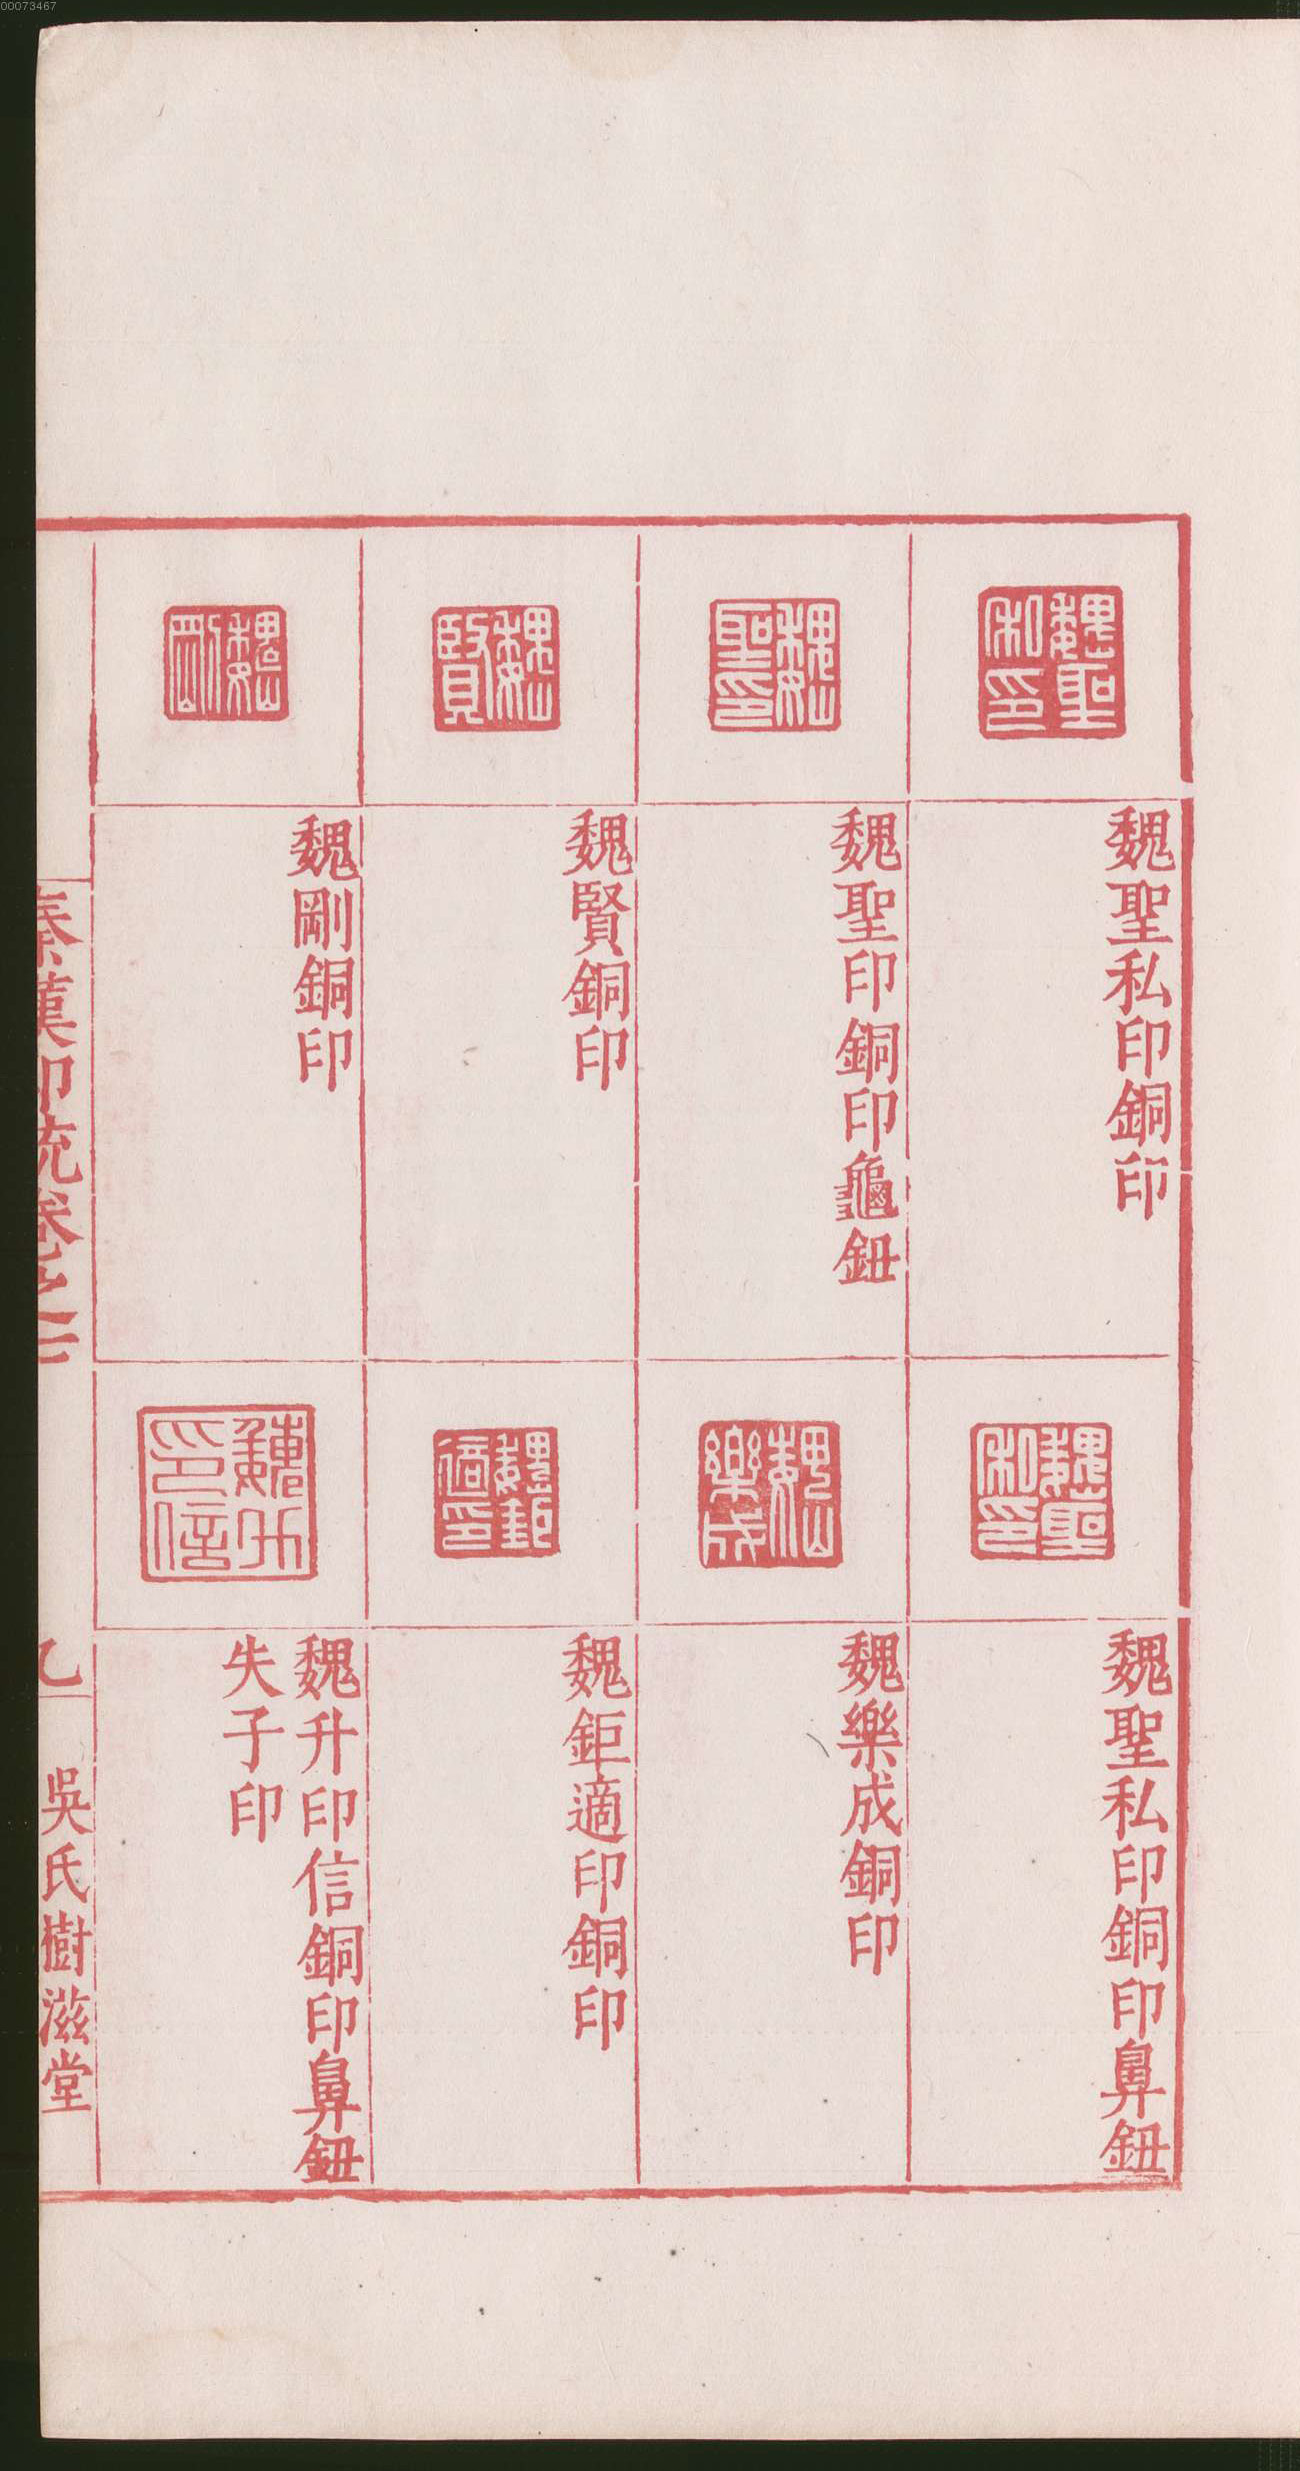 00073467
魏聖私印
魏聖私印銅印
魏聖印
魏聖印銅印龜鈕
魏賢
魏賢銅印
魏剛
魏剛銅印
魏聖私印
魏聖私印銅印鼻鈕
魏樂成
魏樂成銅印
魏鉅適印
魏鉅適印銅印
魏升印信
魏升印信銅印鼻鈕
失子印
秦漢印統卷之二
乙
吳氏樹滋堂